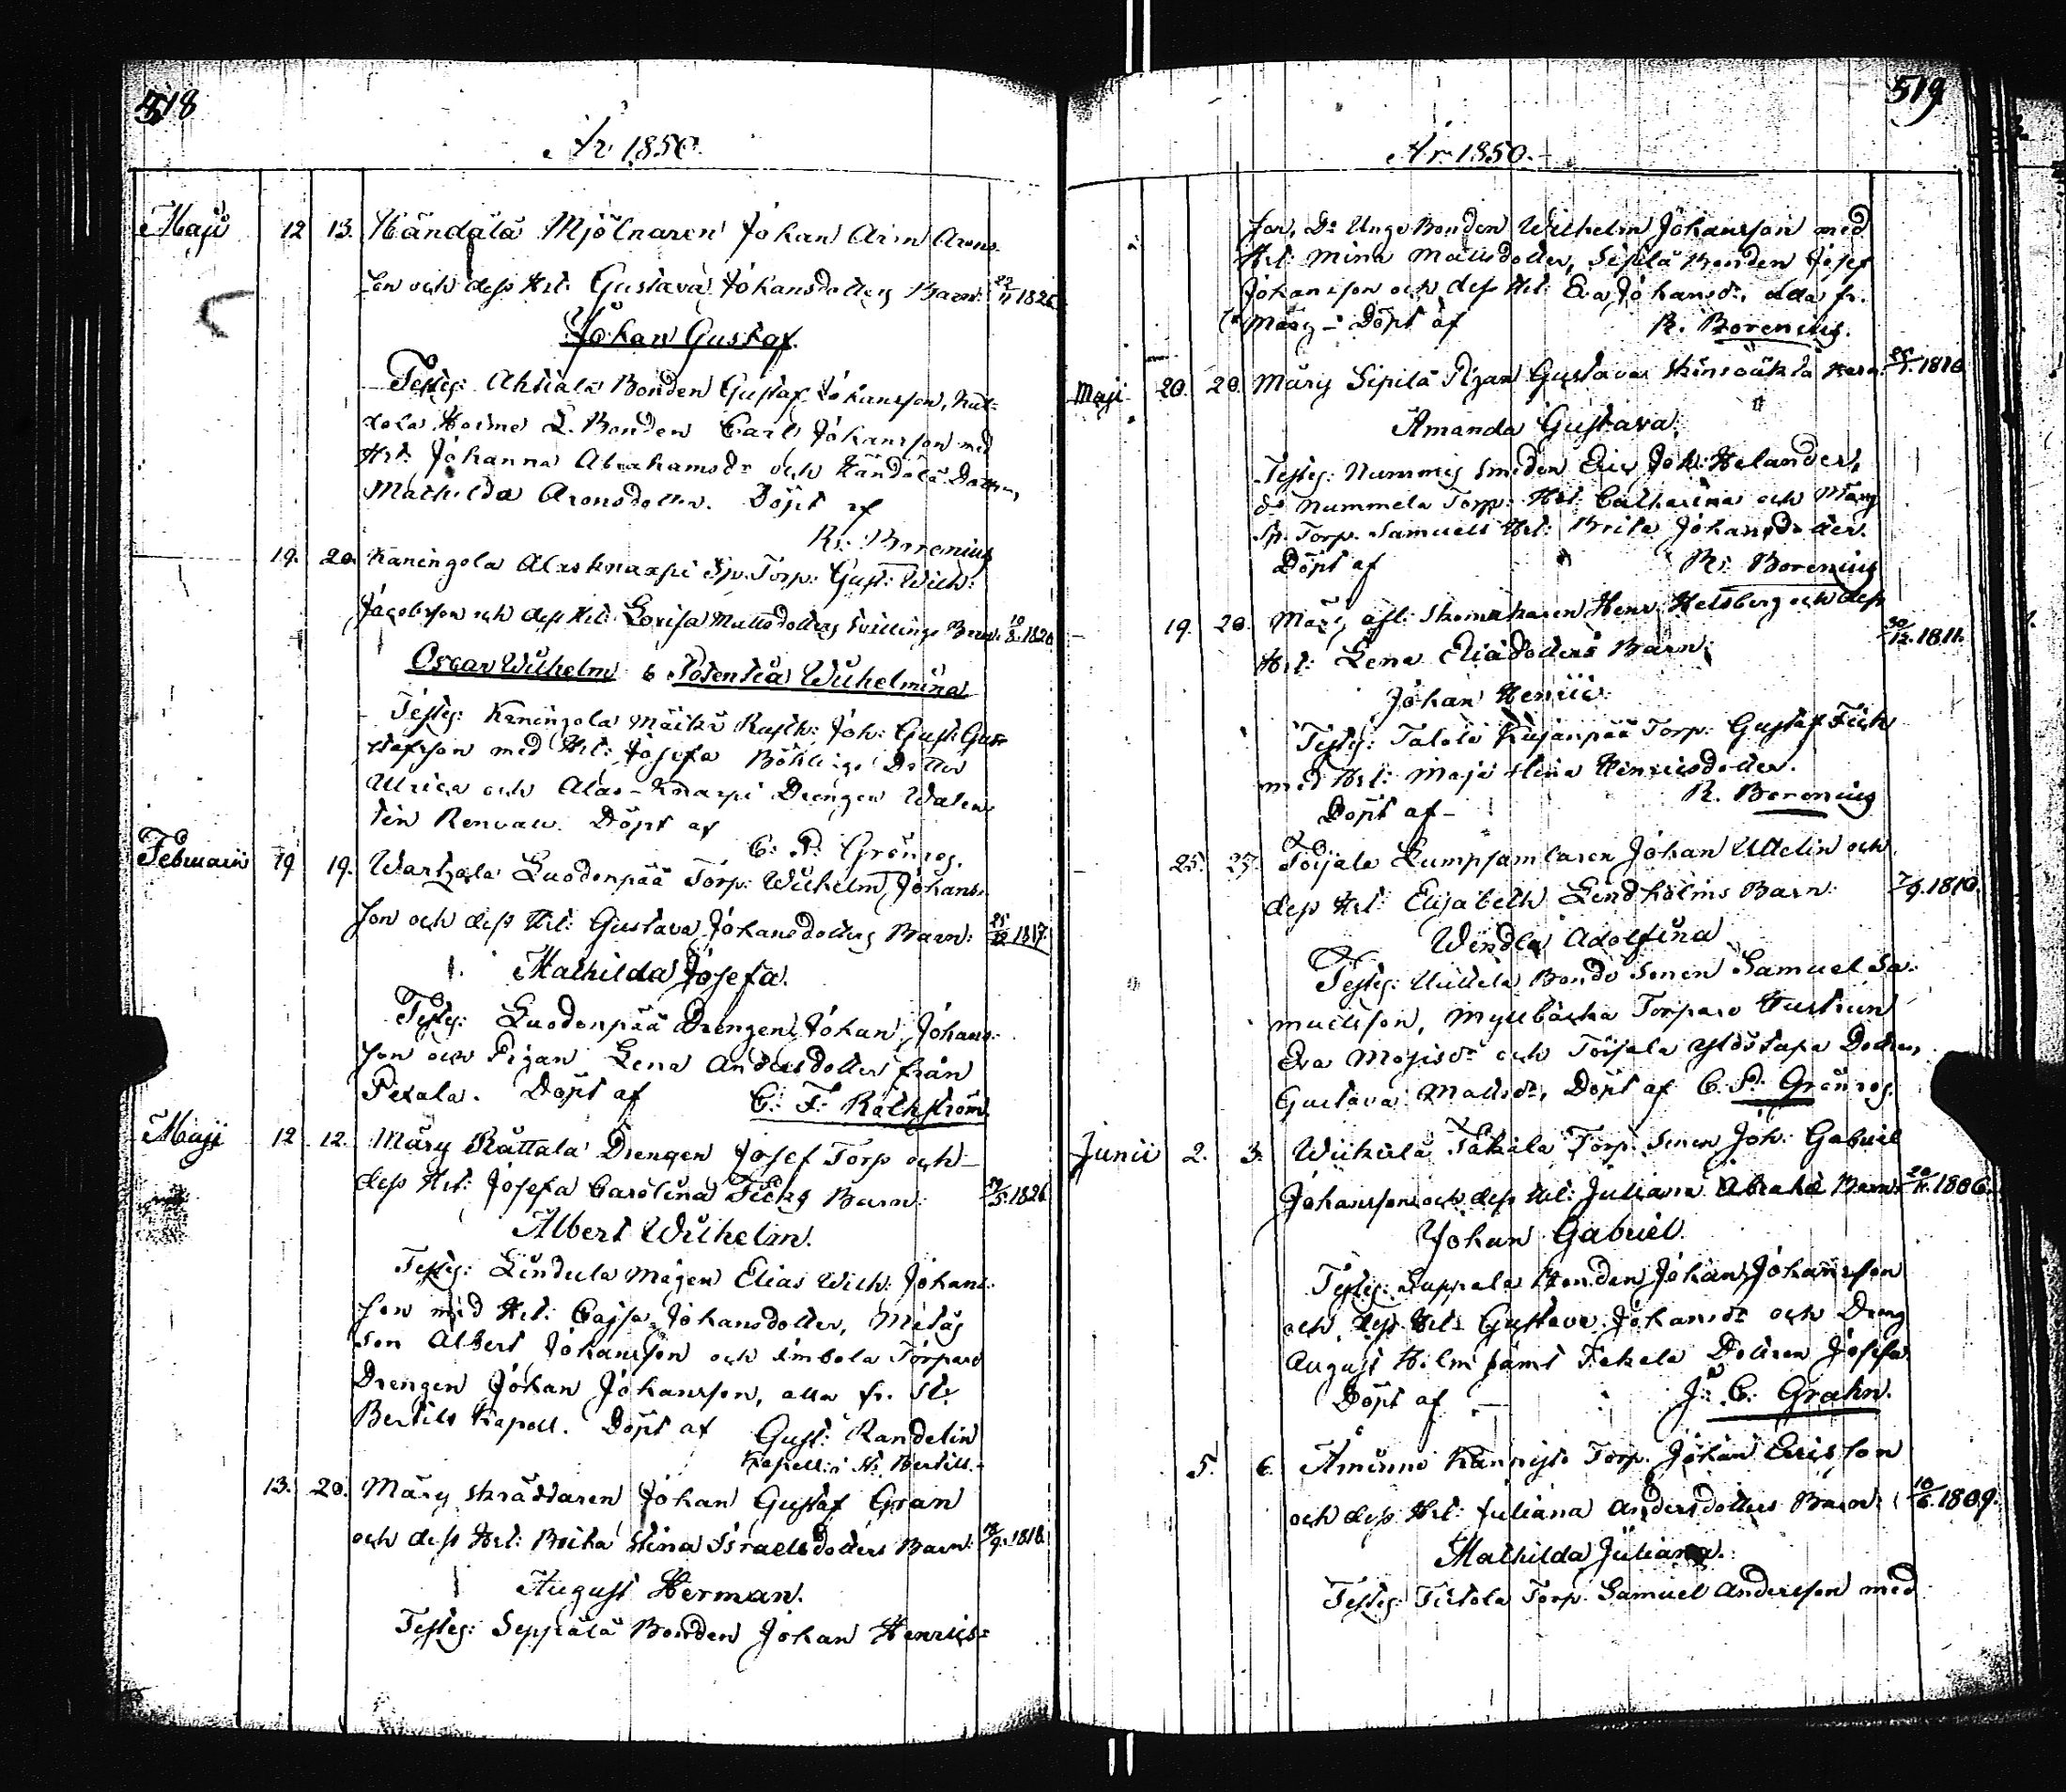 518
År 1850.
Maji 12 13. Händälä Mjölnaren Johan Arons
son och dess Hst: Gustava Johansdotters Barn: 22/11 1826
Johan Gustaf.
Testes: Ahtiala Bonden Gustaf Johansson,
Bonden Carl Johansson med
Hst: Johanna Abrahamsdr och Händälä Dottren,
Mathilda Aronsdotter. Döpt af
R: Borenius
19. 20. Kaningola Alasknaapi Sp. Torp: Gust: Wilh:
Jacobsson och dess Hst: Lovisa Mattsdotters tvillinge Barn: 1820
Oscar Wilhelm & Potentia Wilhelmina
Testes: Kaningola Rusth: Joh: Gust: Gus-
tafsson med Hst: Josefa Böhlings Dotter
Ulrica och Alas-Knaapi Drengen Walen-
tin Renvall. Döpt af
C: P: Grönroos.
Februarii 19 19. Wartsala Luodonpää Torp: Wilhelm Johans-
son och dess Hst: Gustava Johansdotters Barn: 25/12 1817.
Mathilda Josefa.
Testes: Luodonpää Drengen Johan Johans-
son och Pigan Lena Andersdotter från
Döpt af C: F: Räthström
Maji 12 12. Märy Rättala Drengen Josef Torp och
dess Hst: Josefa Carolina Ficks Barn: 1826
Albert Wilhelm.
Testes: Lindula Mågen Elias Wilh: Johans-
son med Hst: Cajsa Johansdotter,
Son Albert Johansson och Torpare
Drengen Johan Johansson, alla fr. St.
Bertils Kapell. Döpt af Gust: Randelin
Kapell: i St: Bertill.
13. 20. Märy skräddaren Johan Gustaf Gran
och dess Hst: Brita Stina Israelsdotters Barn: 1818
August Herman.
Testes: Seppälä Bonden Johan Henrics-
519
År 1850.
son, Do Unge Bonden Wilhelm Johansson med
Hst: Mina Mattsdotter, Sipilä Bonden Josef
Johansson och dess Hst: Eva Johansdr, alla fr.
Märy – Döpt af R. Borenius.
Maji 20. 20. Märy Sipilä Pigan Gustava Barn: 1810
Amanda Gustava.
Testes: Nummis Smeden Eric Joh: Helander,
do Nummela Torp: Hst: Catharina och Märy
Sp. Torp. Samuels Hst: Brita Johansdotter.
Döpt af R: Borenius
19. 20. Märy afl: Skomakaren Henr: Helsberg och dess
Hst: Lena Eliædotters Barn: 30/12. 1811.
Johan Henric.
Testes: Talola Torp: Gustaf Fick
med Hst: Maja Stina Henricsdotter.
Döpt af – R. Borenius
25. 27. Toijala Lumpsamlaren Johan Uttelin och
dess Hst: Elisabeth Lindholms Barn: 7/9. 1810.
Wendla Adolfina
Testes: Uskela Bonde Sonen Samuel Sa-
muelsson, Myllbacka Torpare Hustrun
Eva Mosisdr och Toijala Dottren
Gustava Mattsdr, Döpt af C. P: Grönroos.
Junii 2. 3. Wiikilä Takala Torp. Sonen Joh: Gabriel
Johansson och dess Hst: Juliana Barn: 1806.
Johan Gabriel.
Testes: Bonden Johan Johansson
och dess Hst: Gustava Johansdr och Dreng
August Holm samt Dottren Josefa
Döpt af – J: C: Grahn.
5. 6. Åminne Torp. Johan Ericsson
och dess Hst: Juliana Andersdotters Barn: 10/6. 1809.
Mathilda Juliana.
Testes: Torp. Samuel Andersson med